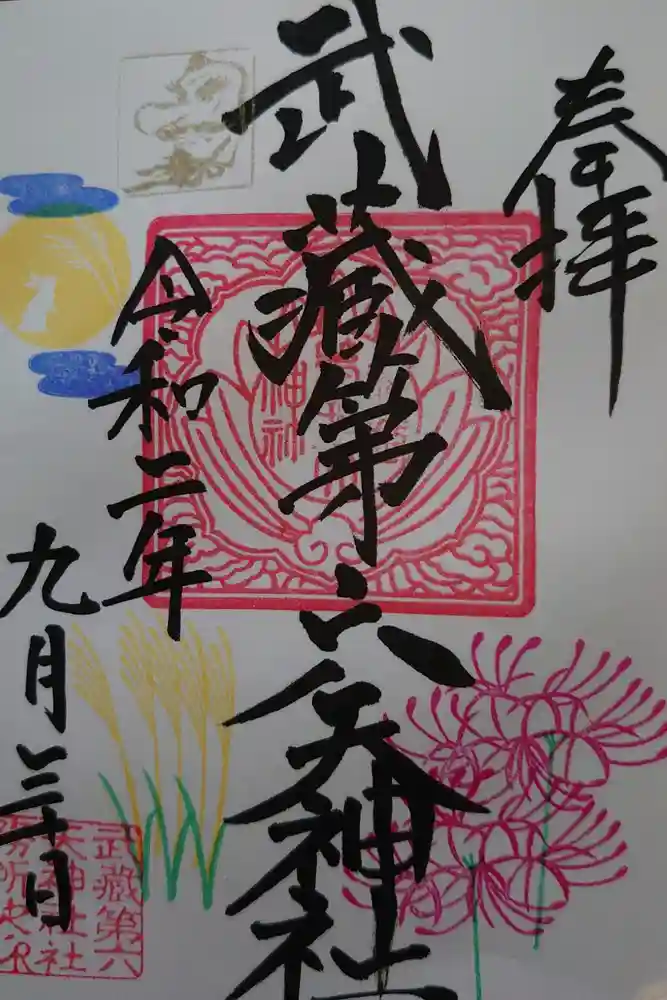 奉拝
武蔵第六天神社
令和二年
九月三十日
武蔵第六
天神社社